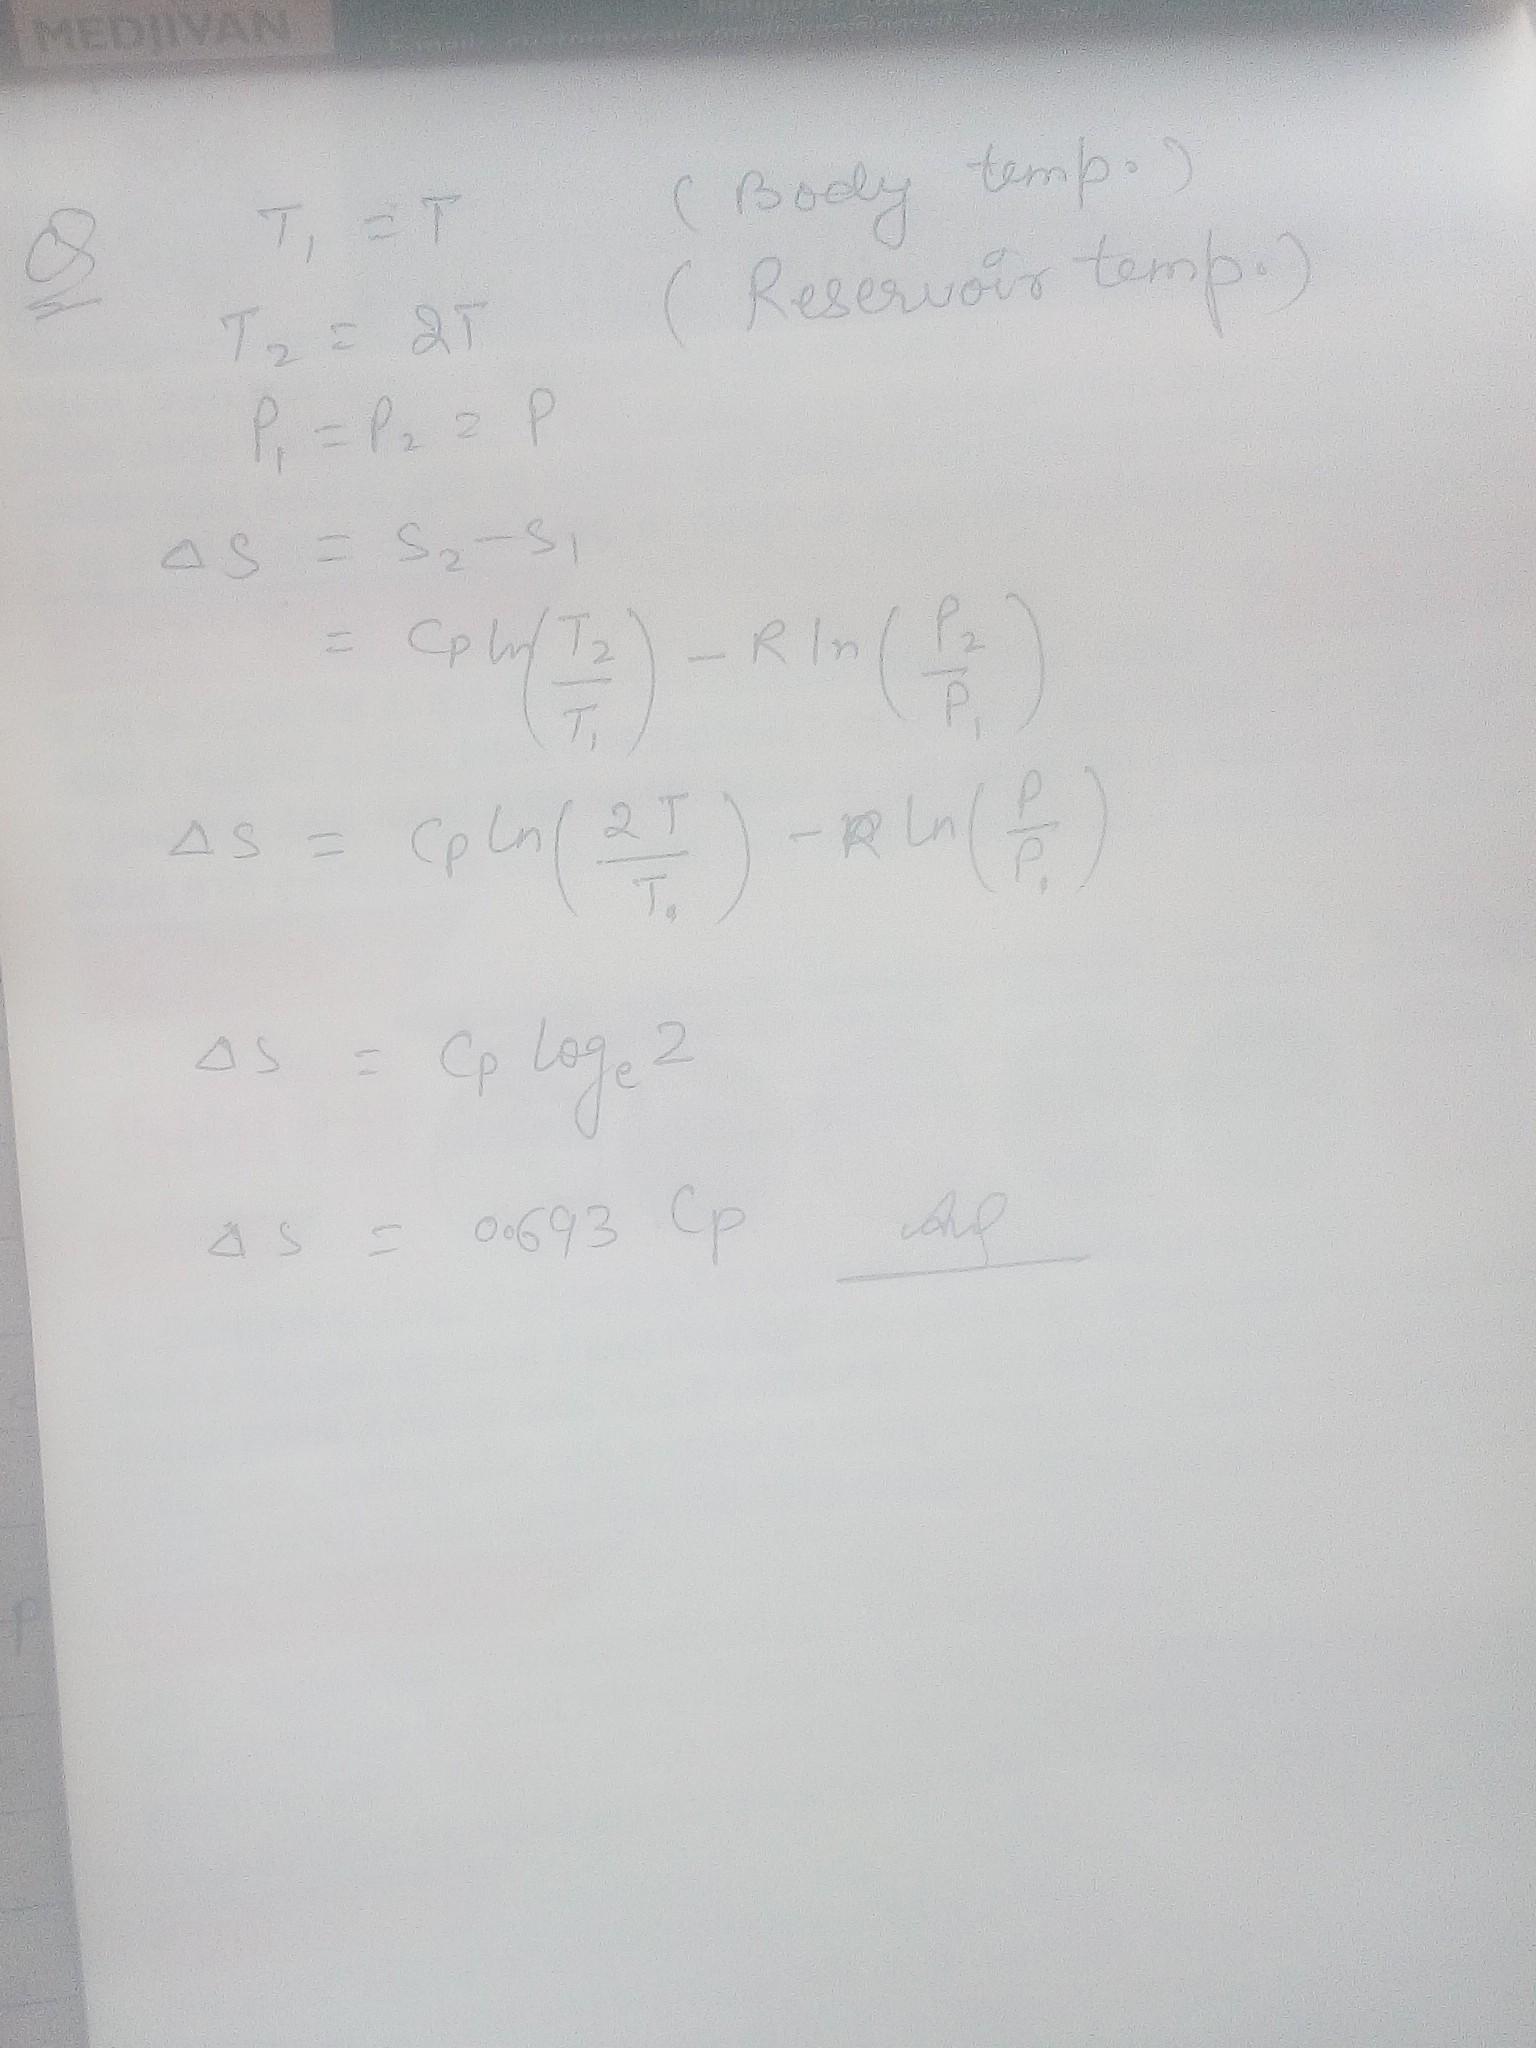 MEDJIVAN
Q T₁ = T (Body temp.)
T₂ = 2T (Reservoir temp.)
P₁ = P₂ = P
ΔS = S₂ - S₁
= Cp ln(T₂/T₁) - R ln(P₂/P₁)
ΔS = Cp ln(2T/T.) - R ln(P/P.)
ΔS = Cp logₑ2
ΔS = 0.693 Cp Ans
P